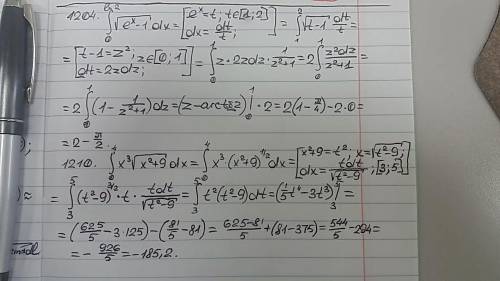 1204. ∫₀^{ln2} √(eˣ-1) dx = [eˣ=t; t∈[1;2] dx=dt/t;] = ∫₁² √(t-1) dt/t =
= [t-1=z²; z∈[0;1] dt=2zdz;] = ∫₀¹ z·2zdz·1/(z²+1) = 2∫₀¹ z²dz/(z²+1) =
= 2∫₀¹ (1 - 1/(z²+1))dz = (z-arctgz)|₀¹ · 2 = 2(1-π/4)-2·0 =
= 2 - π/2.
1210. ∫₀⁴ x³√(x²+9) dx = ∫₀⁴ x³·(x²+9)^{1/2} dx = [x²+9=t²; x=√(t²-9); dx=tdt/√(t²-9); [3;5]] =
= ∫₃⁵ (t²-9)^{3/2} · t · tdt/√(t²-9) = ∫₃⁵ t²(t²-9)dt = (1/5 t⁴ - 3t³)|₃⁵ =
= (625/5 - 3·125) - (81/5 - 81) = (625-81)/5 + (81-375) = 544/5 - 294 =
= - 926/5 = -185,2.